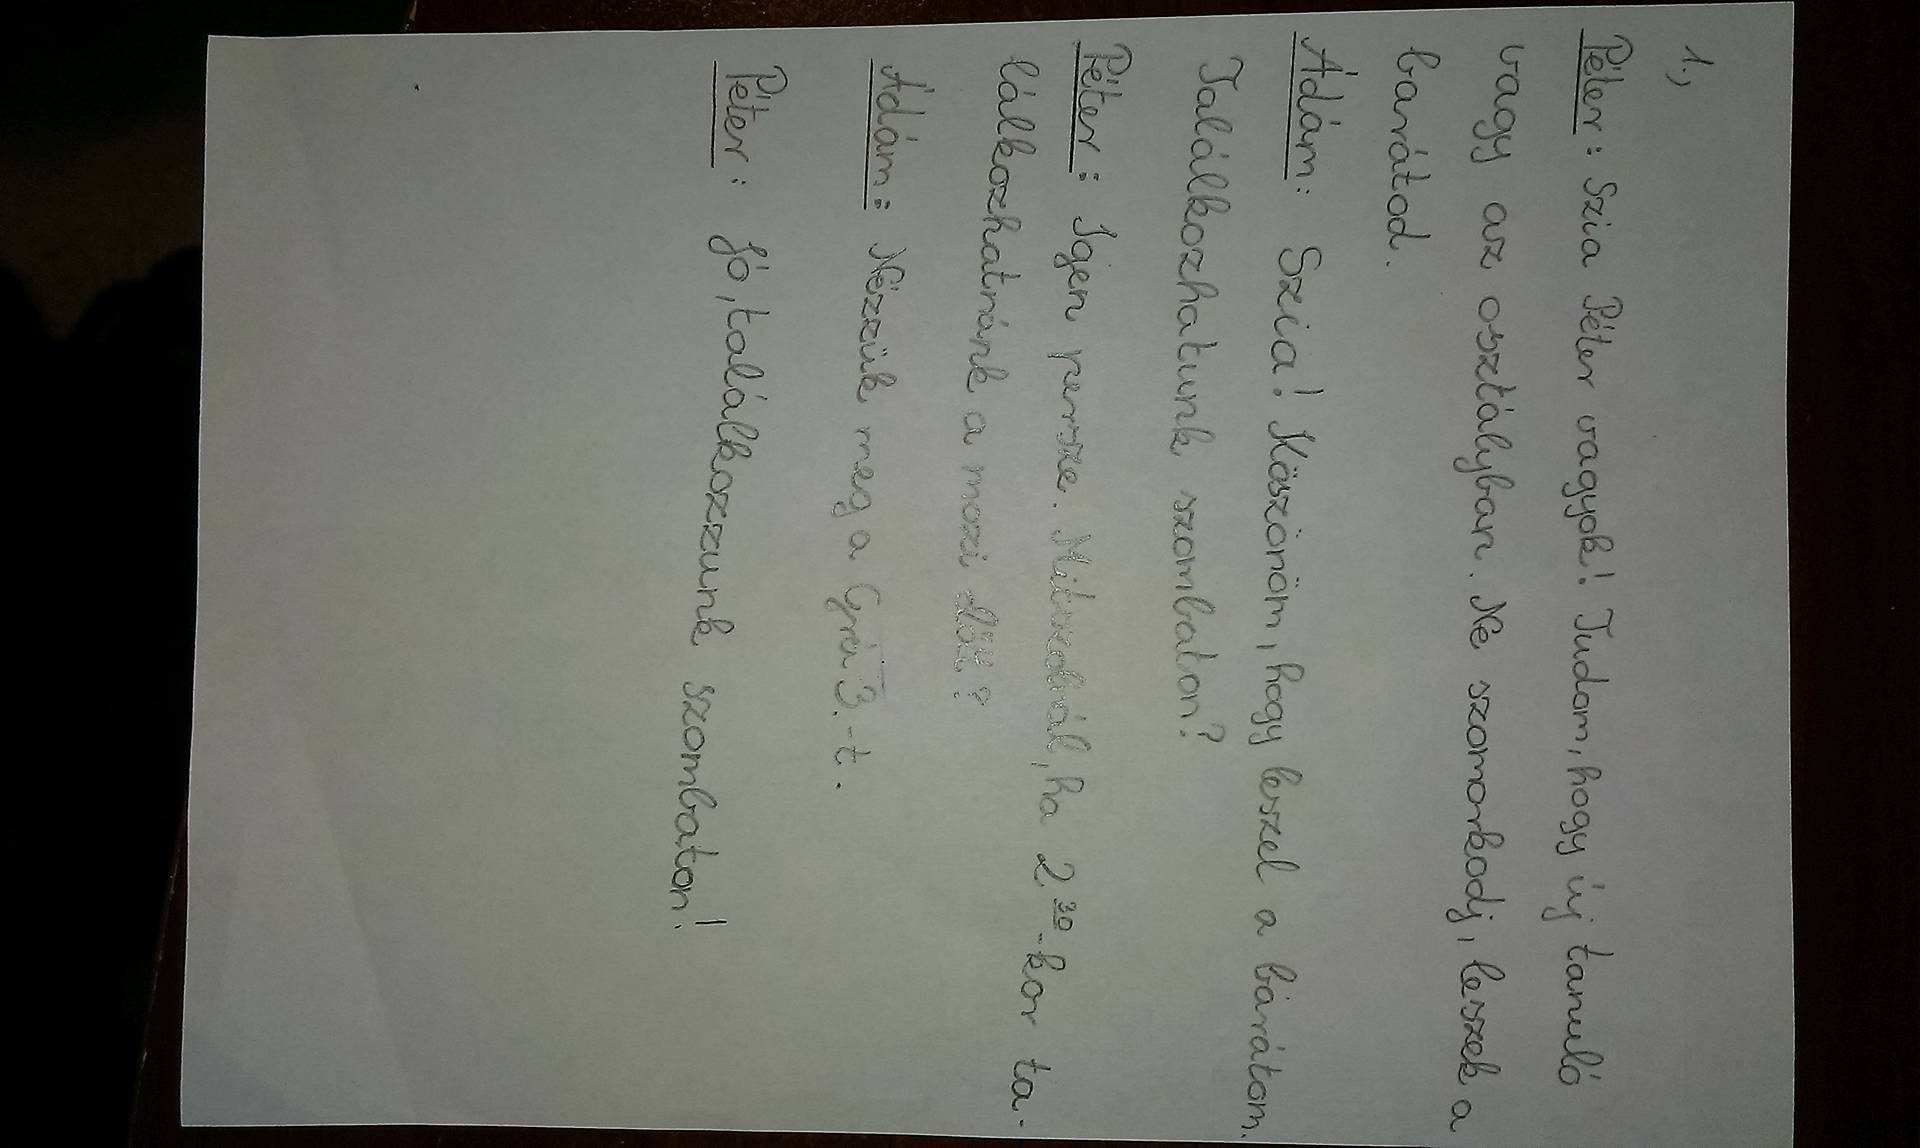 1.,
Péter: Szia Péter vagyok! Tudom, hogy új tanuló
vagy az osztályban. Ne szomorkodj, leszek a
barátod.
Ádám: Szia! Köszönöm, hogy leszel a bárátom.
Találkozhatunk szombaton?
Péter: Igen persze. Mitszólnál, ha 2 30-kor ta-
lálkozhatnánk a mozi előtt?
Ádám: Nézzük meg a Gru 3.-t.
Péter: Jó, találkozzunk szombaton!